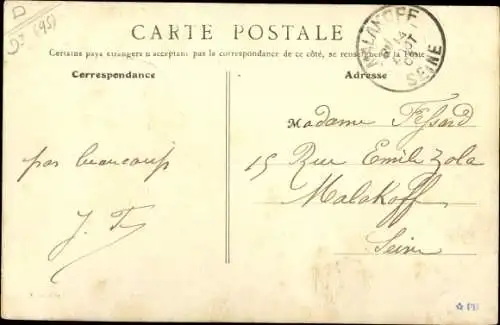 D
(95)
CARTE POSTALE
Certains pays étrangers n'acceptant pas la correspondance de ce côté, se renseigner à la Poste
MALAKOFF
SEINE
Correspondance
Adresse
Madame Fessard
15 Rue Emile Zola
Malakoff
Seine
pas beaucoup
J. F.